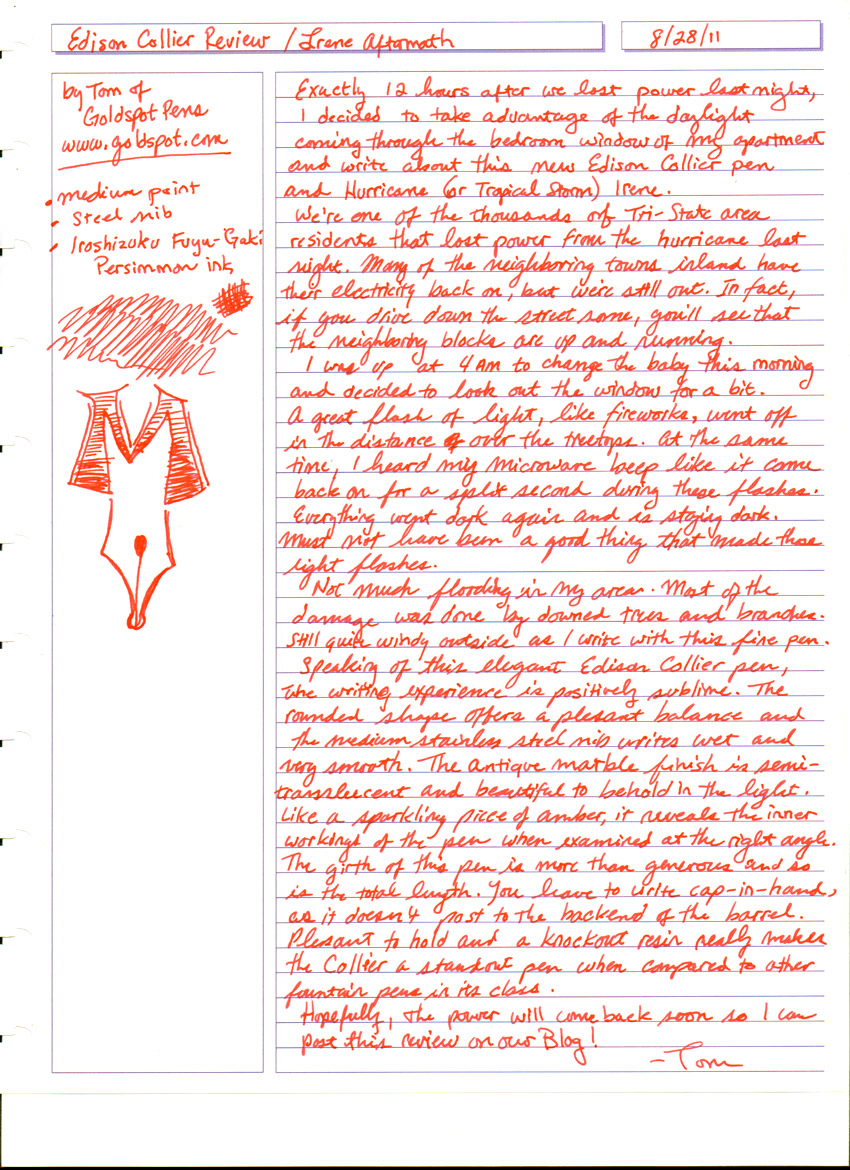 Edison Collier Review / Irene Aftermath
8/28/11
by Tom of
Goldspot Pens
www.goldspot.com
• medium point
• Steel nib
• Iroshizuku Fuyu-Gaki
Persimmon ink
Exactly 12 hours after we lost power last night,
I decided to take advantage of the daylight
coming through the bedroom window of my apartment
and write about this new Edison Collier pen
and Hurricane (or Tropical Storm) Irene.
We're one of the thousands of Tri-State area
residents that lost power from the hurricane last
night. Many of the neighboring towns inland have
their electricity back on, but we're still out. In fact,
if you drive down the street some, you'll see that
the neighboring blocks are up and running.
I was up at 4AM to change the baby this morning
and decided to look out the window for a bit.
A great flash of light, like fireworks, went off
in the distance over the treetops. At the same
time, I heard my microwave beep like it came
back on for a split second during these flashes.
Everything went dark again and is staying dark.
Must not have been a good thing that made those
light flashes.
Not much flooding in my area. Most of the
damage was done by downed trees and branches.
Still quite windy outside as I write with this fine pen.
Speaking of this elegant Edison Collier pen,
the writing experience is positively sublime. The
rounded shape offers a plesant balance and
the medium stainless steel nib writes wet and
very smooth. The antique marble finish is semi-
translucent and beautiful to behold in the light.
Like a sparkling piece of amber, it reveals the inner
workings of the pen when examined at the right angle.
The girth of this pen is more than generous and so
is the total length. You have to write cap-in-hand,
as it doesn't post to the backend of the barrel.
Plesant to hold and a knockout resin really makes
the Collier a standout pen when compared to other
fountain pens in its class.
Hopefully, the power will come back soon so I can
post this review on our Blog!
- Tom